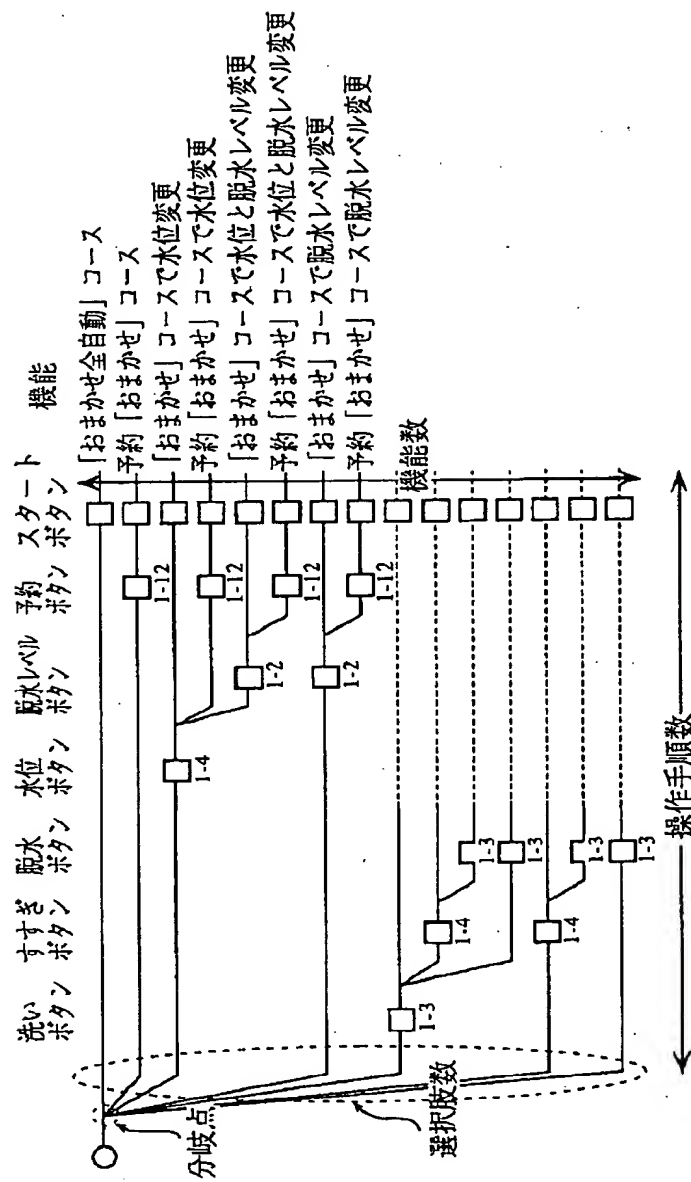 洗い
ボタン
すすぎ
ボタン
脱水
ボタン
水位
ボタン
脱水レベル
ボタン
予約
ボタン
スタート
ボタン
機能
「おまかせ全自動」コース
予約「おまかせ」コース
「おまかせ」コースで水位変更
予約「おまかせ」コースで水位変更
「おまかせ」コースで水位と脱水レベル変更
予約「おまかせ」コースで水位と脱水レベル変更
「おまかせ」コースで脱水レベル変更
予約「おまかせ」コースで脱水レベル変更
1-12
1-4
1-12
1-2
1-12
1-2
1-12
1-3
1-4
1-3
1-3
1-4
1-3
1-3
機能数
分岐点
選択肢数
操作手順数